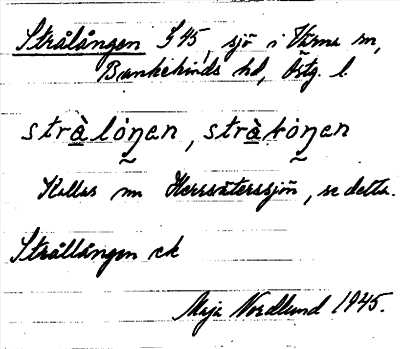 Strålången §45, sjö i Värna sn,
Bankekinds hd, Östg. l.
stràliŋen, stràkiŋen
Kallas nu Herrsäterssjön, se detta.
Strållången ek
Maja Nordlund 1945.